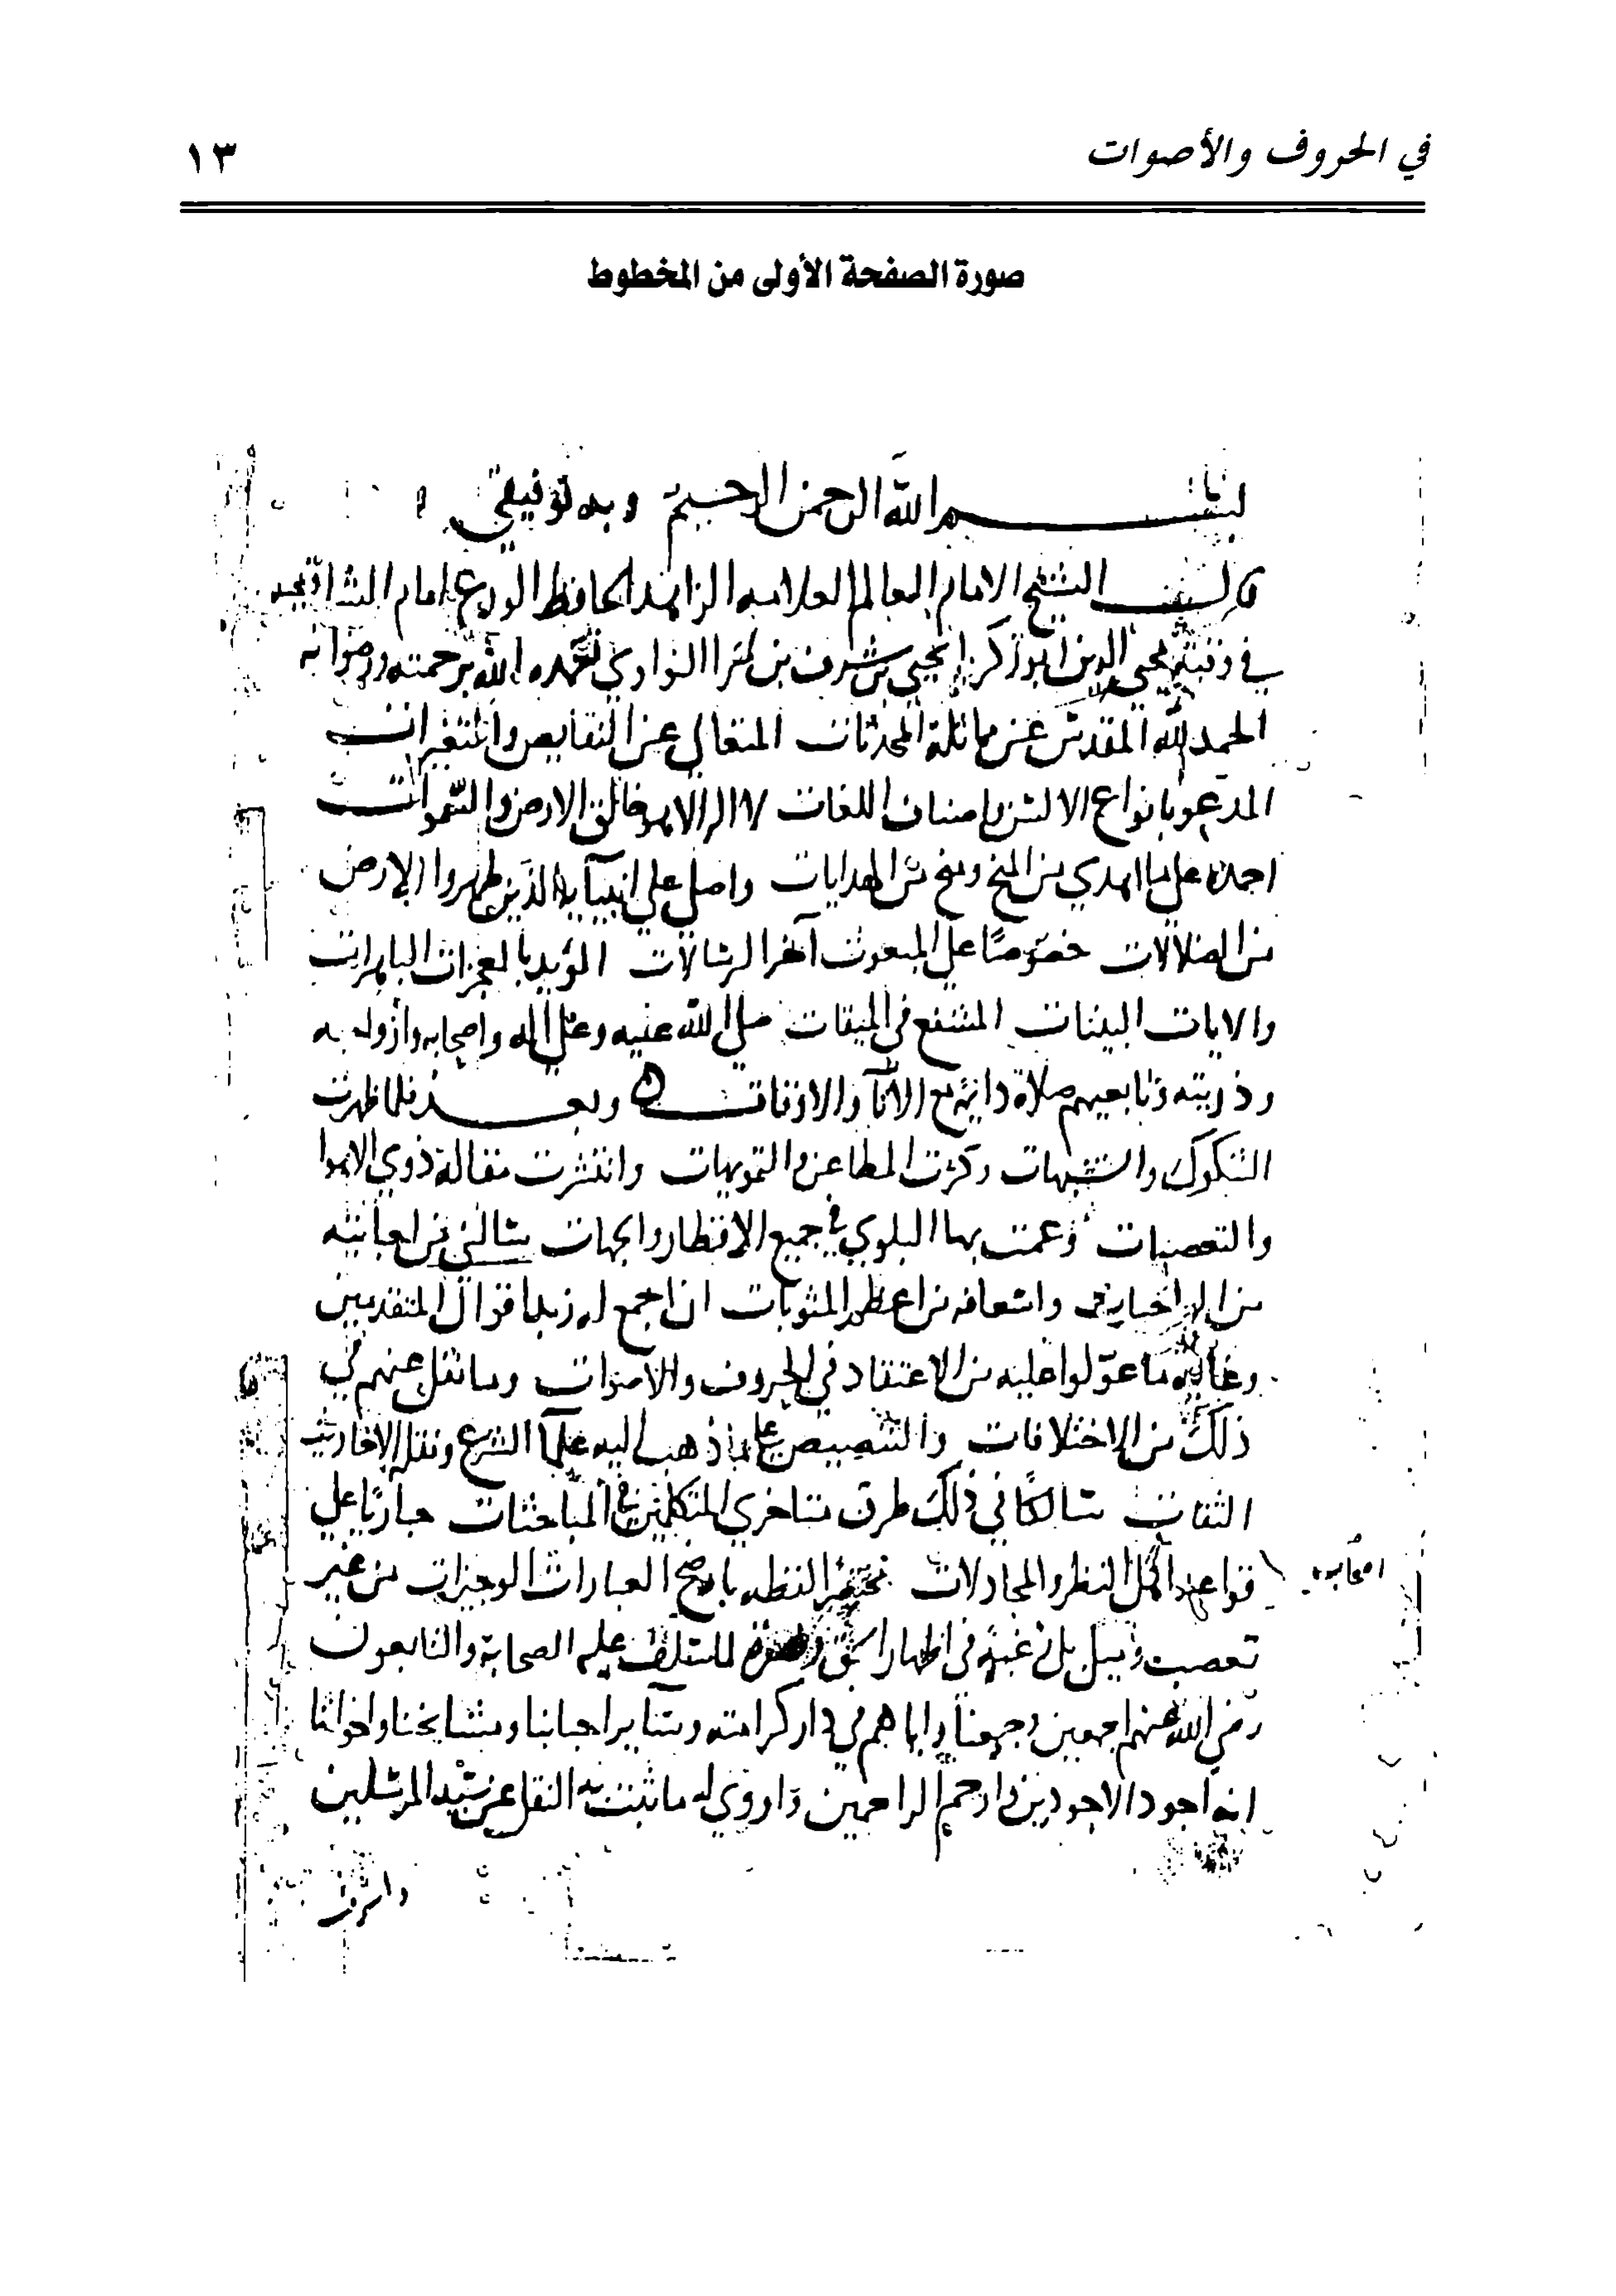 في الحروف والأصوات
١٣
صورة الصفحة الأولى من المخطوط
بسم الله الرحمن الرحيم وبه توفيقي
قال الشيخ الامام العالم العلامه الزاهد الحافظ الورع امام الشافعيه
في وقته محيي الدين ابو زكريا يحيي بن شرف بن النواوي تغمده الله برحمته ورضوانه
الحمد لله المقدس عن مماثلة المحدثات المتعالي عن النقايص والتغيرات
المدعو بانواع الالسن واصناف اللغات خالق الارض والسموات
احمده على ما اهدي من المنح ومنح من الهدايات واصلي علي انبيآيه الذين طهروا الارض
من الضلالات خصوصًا علي المبعوث آخر الرسالات المؤيد بالمعجزات الباهرات
والايات البينات المشفع في الميقات صلي الله عليه وعلي اله واصحابه وازواجه
وذريته وتابعيهم صلاة دايمة مع الانآ والاوقات وبعد فلما ظهرت
الشكوك والشبهات وكثرت المطاعن والتمويهات وانتشرت مقالة ذوي الاهوا
والتعصبات وعمت بها البلوي في جميع الاقطار والجهات سالني من اجابته
من واسعافه من اعظم المثوبات ان اجمع له زبد اقوال المتقدمين
ما عوّلوا عليه من الاعتقاد في الحروف والاصوات وما نقل عنهم في
ذلك من الاختلافات والتنصيص على ما ذهب اليه علمآ الشرع ونقلة الاحاديث
الثقات سالكًا في ذلك طرق متاخري المتكلمين في المباحثات جاريًا علي
قواعد اهل النظر والمجادلات باوضح العبارات الوجيزات من غير
اصحابه
تعصب وميل بل رغبة في اظهار الحق للسلف عليه الصحابة والتابعون
رضي الله عنهم اجمعين وجمعنا واياهم في دار كرامته وسآير احبابنا ومشايخنا واخواننا
انه اجود الاجودين وارحم الراحمين واروي له ما ثبت به النقل عن سيد المرسلين
واشرف